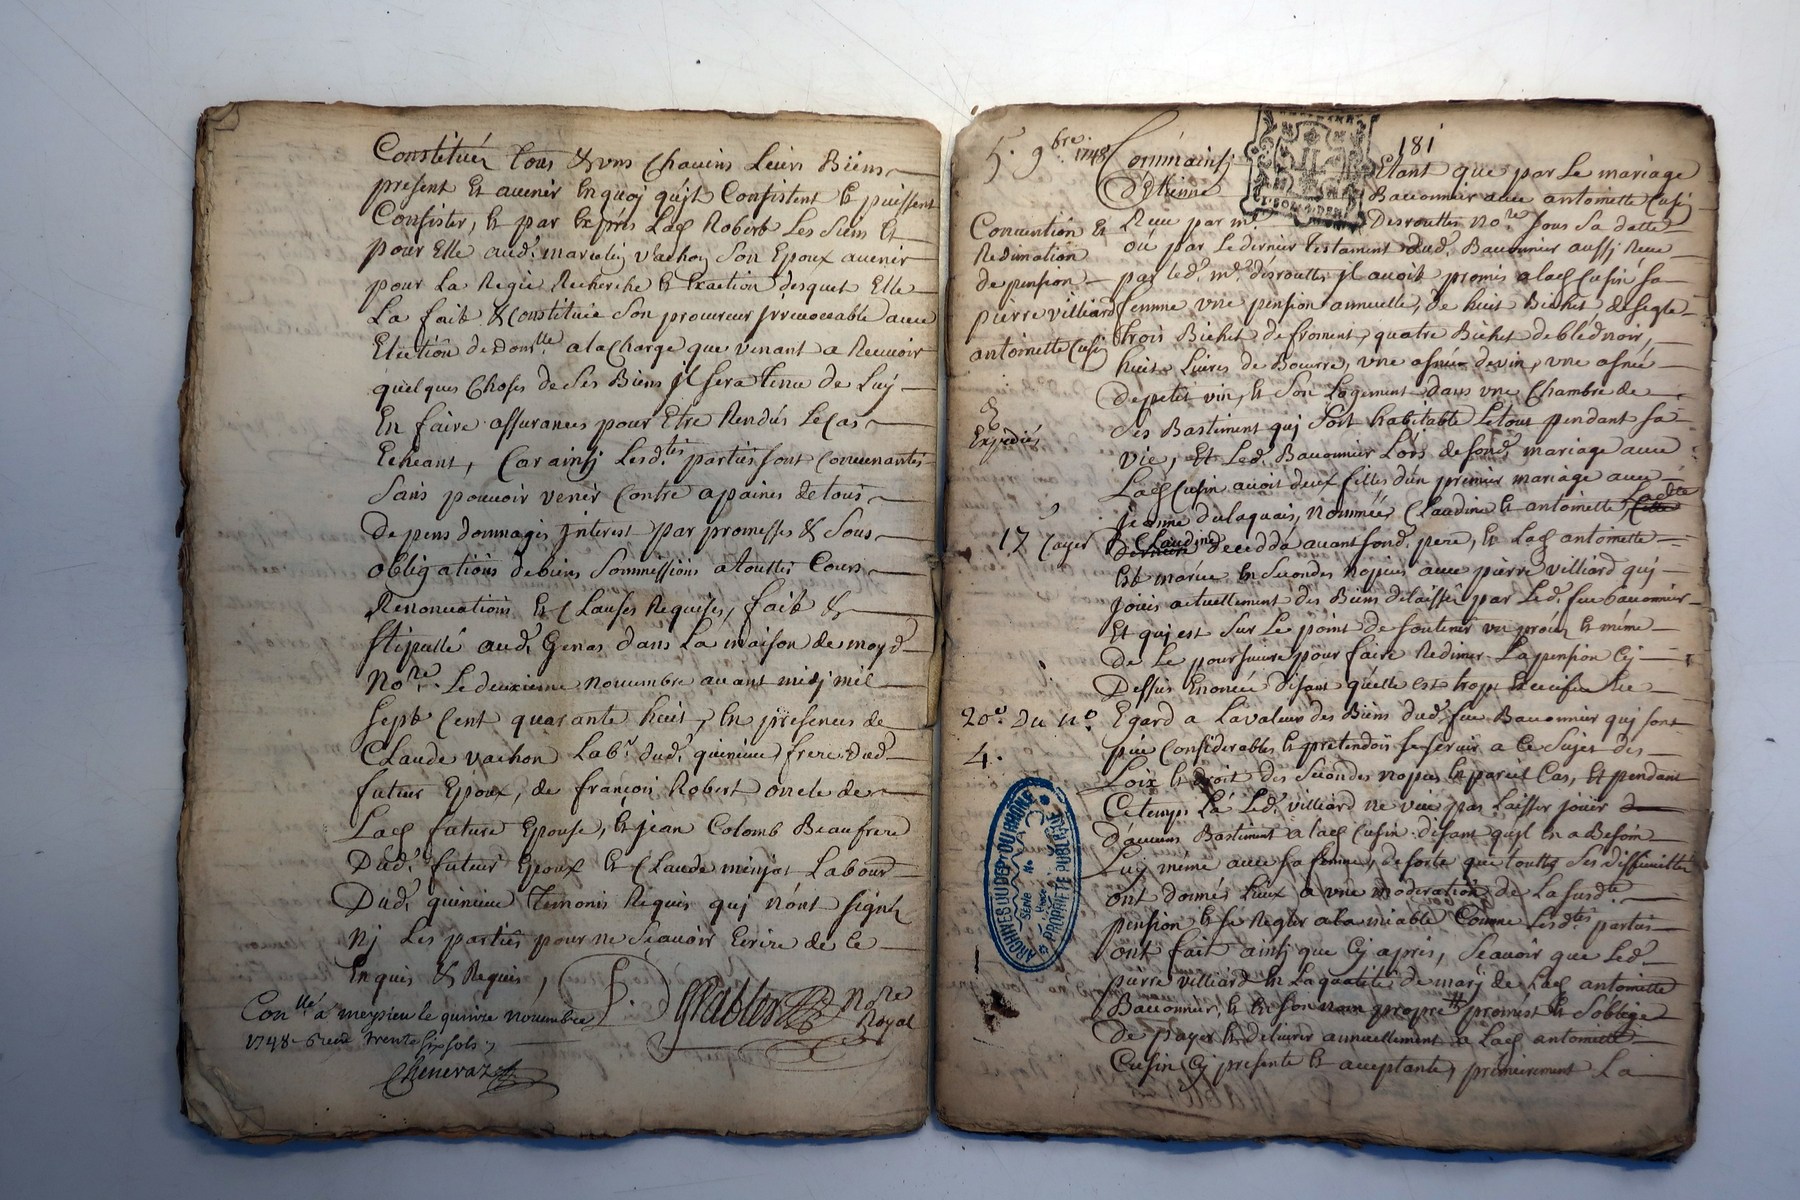 Constituér tous & vns Chacuns Leurs Biens
present Et auenir En quoj quist Consistent & puissent
Consister, Et par Exprés Lad. Robert Les Siens Et
pour Elle aud. marcelin Vachon Son Epoux auenir
pour La Regie Recherche & Exaction desquels Elle
La fait & constitüe Son procureur jrreuocable auec
Election de domlle a la Charge que venant a Receuoir
quelques Choses de Ses Biens jl sera Tenu de Luy
En faire assurances pour Etre Rendués Le Cas
Echeant, Car ainsj Lesd.tes parties sont Conuenantes
Sans pouuoir venir Contre a paines de tous
Depens dommages jnterest par promesses & Sous
obligations de biens Sommissions a touttes Cours
Renonciations Et Clauses Requises, fait &
stipullé aud. Genas dans La maison de moy d.
Nore. Le deuxieme nouembre auant midj mil
sept Cent quarante huit, En presences de
Claude vachon Labr. dud. quinieux frere dud.
futur Epoux, de françois Robert oncle de
Lad. future Epouse, & jean Colomb Beaufrere
Dud. futur Epoux & Claude minjat Labour
Dud. quinieux Temoins Requis quj n'ont signé
Nj Les parties pour ne Scauoir Ecrire de ce
Enquis & Requis,
Grablier Nore Royal
Conllé a meysieu le quinze nouembre
1748 Reçu trente six sols,
Chenevaz
181
5. 9bre. 1748 Comm ainsj
D'Etienne
Etant que par Le mariage
Bauonnier auec antoinette Cusin
Reçu par me. Desrouttes Nore. Sous Sa datte
où par Le dernier Testament dud. Bauonnier aussj Reçu
par led. me. desrouttes jl auoit promis a lad. Cusin sa
femme vne pension annuelle, de huit Bichet de segle
Trois Bichet de froment, quatre Bichet de bléd noir,
huit Liures de Beurre, vne asnée de vin, vne asnée
de petit vin, & Son Logement dans vne Chambre de
Ses Bastiment quj Soit habitable Le tout pendant sa
vie, Et Led. Bauonnier Lors de sond. mariage auec
Lad. Cusin auoit deux filles d'un premier mariage auec
jeanne dulaquais, nommées Claudine & antoinette, Ladte
Claudine decedda auant sond. pere, & Lad. antoinette
Est mariée En Secondes nopces auec pierre villiard quj
jouis actuellement des Biens delaissés par Led. feu bauonnier
Et quj est Sur Le point de soutenir vn procez & méme
de Le poursuiure pour faire Redimer La pension Cj
Dessus Enoncée disant qu'elle est trop Excessiue
Egard a La valeur des Biens dud. feu Bauonnier quj sont
peu Considerables & pretendois se seruir a Ce Sujet des
Loix & droit des Secondes nopces En pareil Cas, Et pendant
Ce temps La Led. villiard ne veut pas laisser jouir
d'aucuns Bastiment a lad. Cusin disant qujl En a Besoin
Luj méme auec sa femme, de sorte que touttes Ses difficultés
ont donnés Lieux a vne moderation de La susdte.
pension & se Regler a la miable Comme Lesd.tes parties
ont fait ainsj que Cj aprés, Scauoir que Led.
pierre villiard En La qualité de marj de Lad. antoinette
Bauonnier, & En son nom propre # promest & S'oblige
De payer & deliurer annuellement a Lad. antoinette
Cusin Cj presente & acceptante, premierement La
Conuention &
Redimation
de pension
pierre villiard
antoinette Cusin
&
Expediés
17 Cayer
20e. Du no.
4.
ARCHIVES DU DEPT DU RHÔNE
SÉRIE No
PROPRIÉTÉ PUBLIQUE